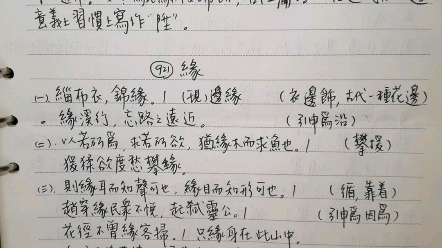 意義上習慣上寫作"陞"。
921 緣
(一). 緇布衣,錦緣。1 (現)邊緣 (衣邊飾,古代一種花邊)
。緣溪行,忘路之遠近。 (引伸爲沿)
(二). 以若所爲,求若所欲,猶緣木而求魚也。1 (攀援)
猨猱欲度愁攀緣。
(三). 則緣耳而知聲可也,緣目而知形可也。1 (循,靠着)
趙穿緣民衆不悅,起弒靈公。1 (引伸爲因爲)
花徑不曾緣客掃。1 只緣身在此山中。